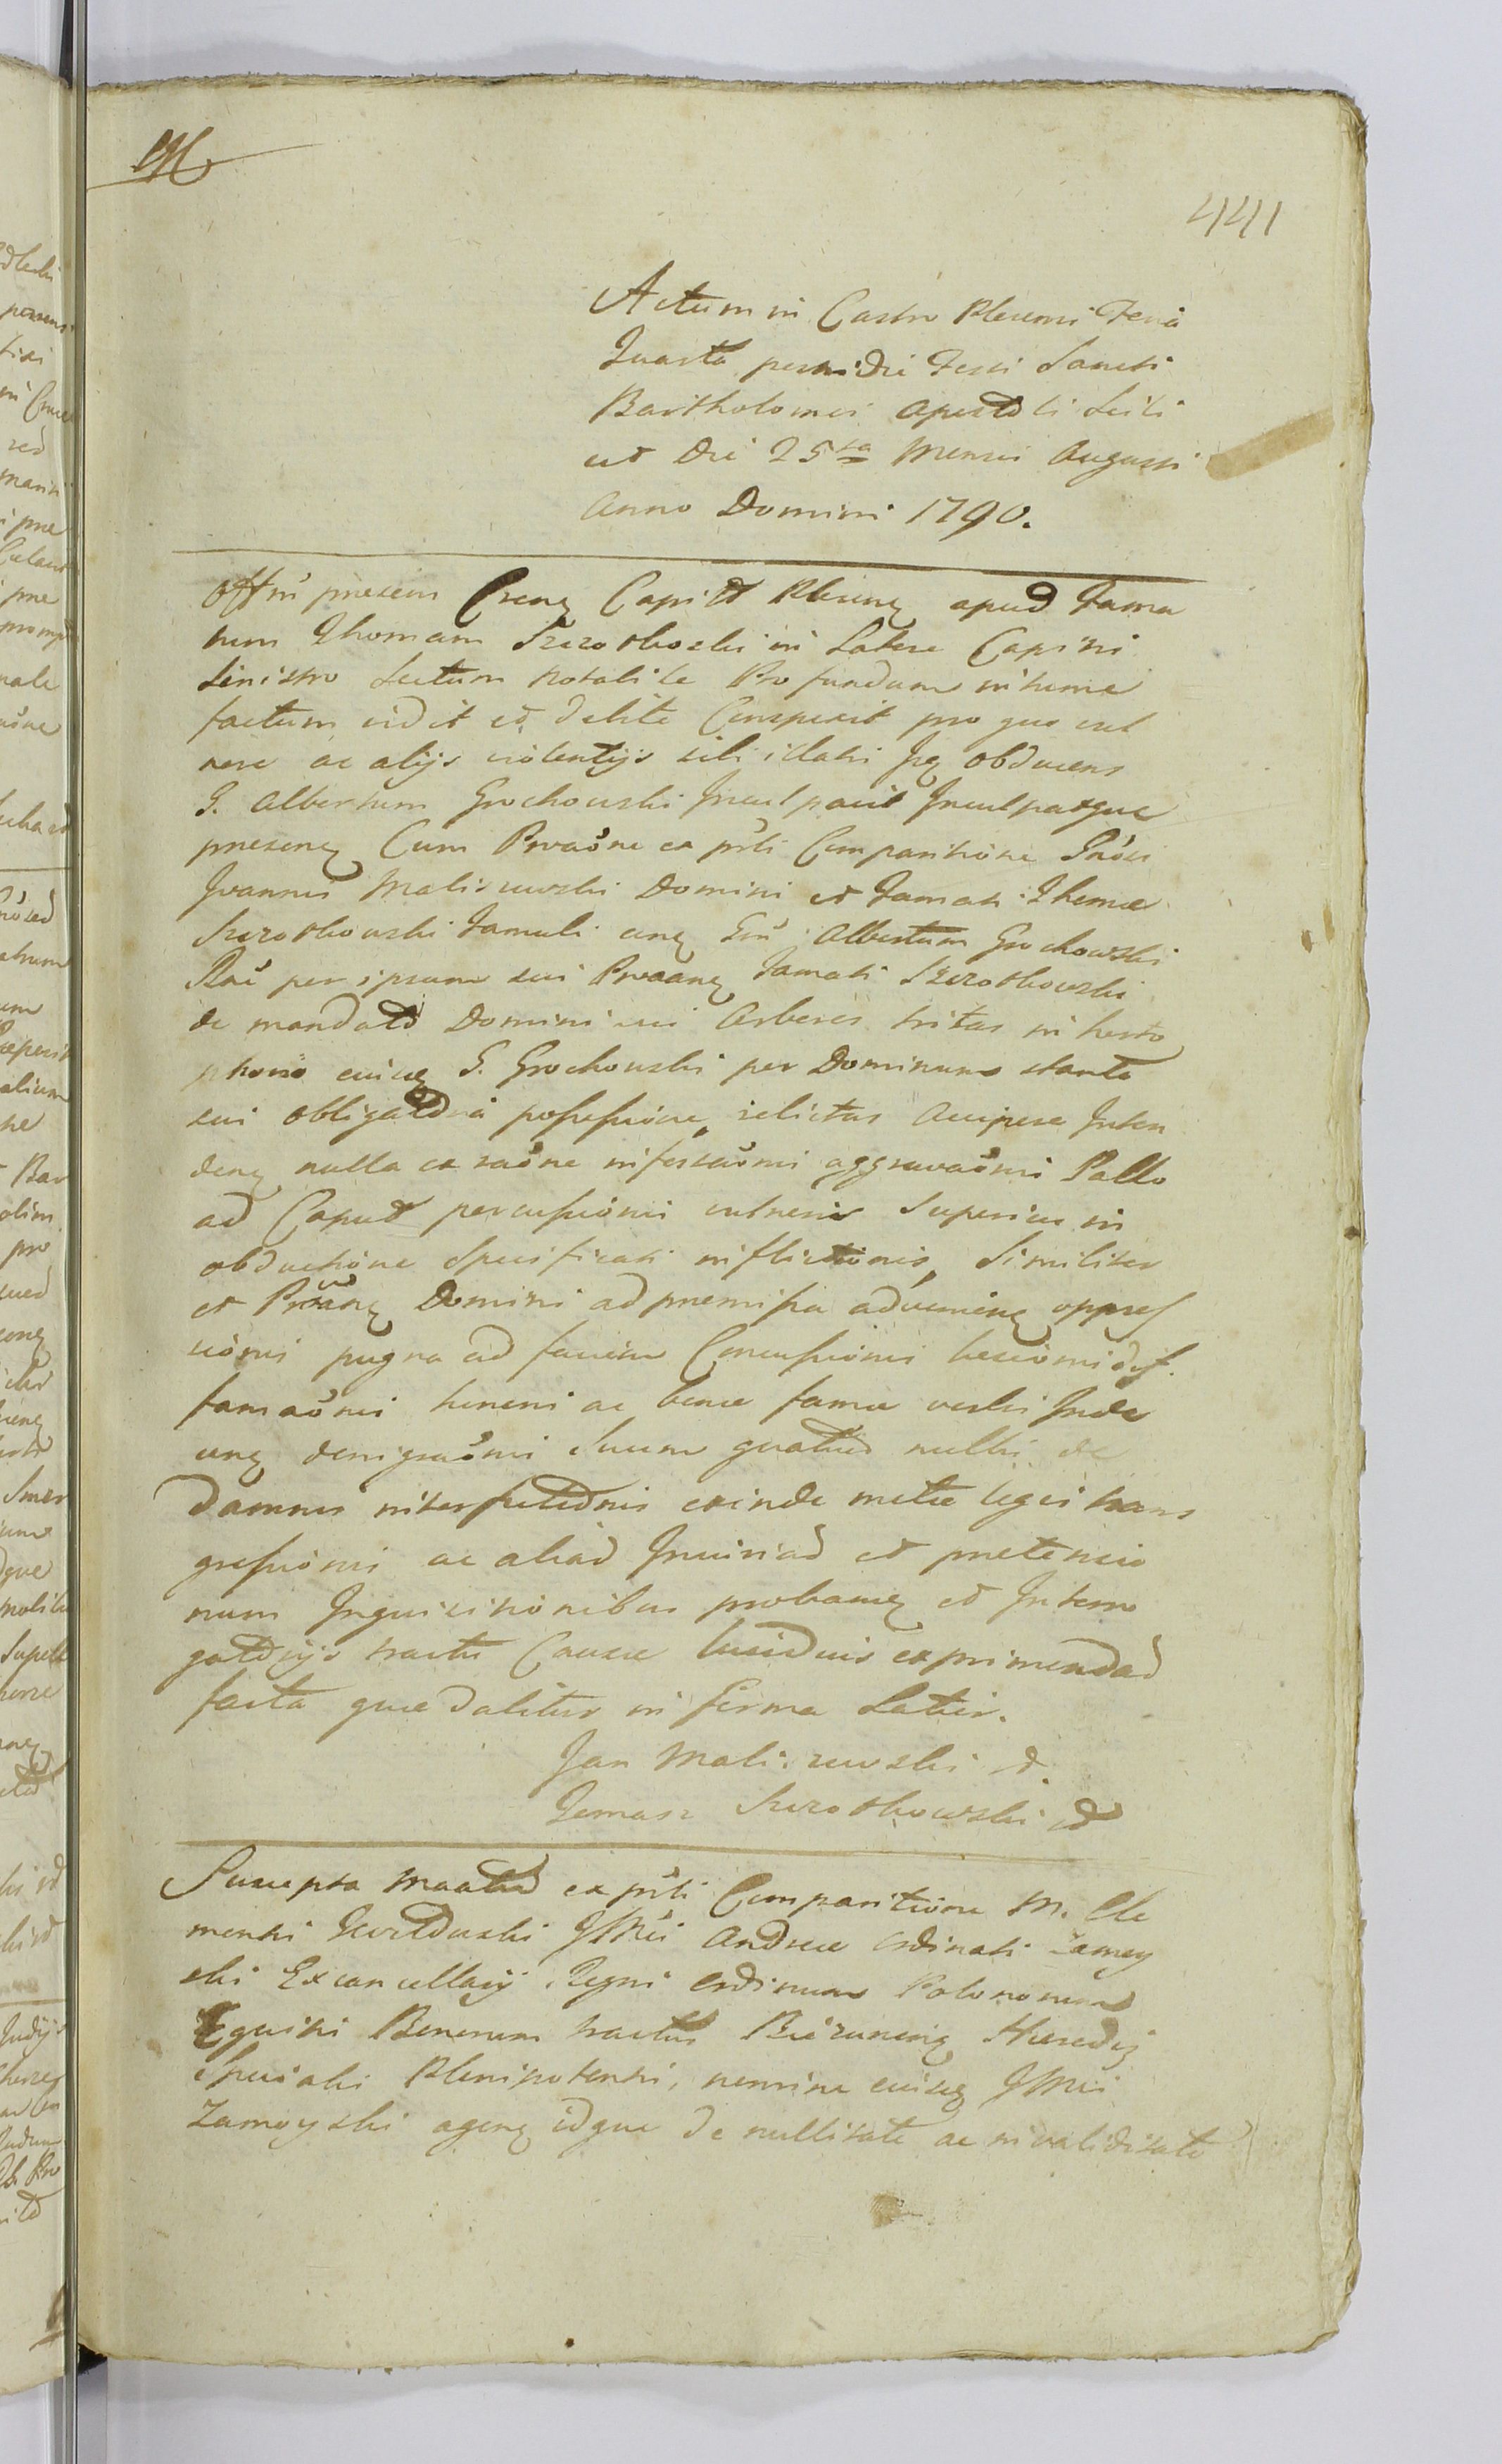 441
Actum in Castro Plecensi Feria
Quarta postridie Festi Sancti
Bartholomei Apostoli Scili
cet Die 25ta Mensis Augusti
Anno Domini 1790.
Offm presens Crens Capit Plecens apud Fama
tum Thomam Szczotkoski in Latere Capitis
Sinistro Ictum notabile Profundum
factum vidit et debite Conspexit pro quo vul
nere ac alijs violentijs sibi illatis Js obducens
G. Albertum Grochowski Inculpavit Inculpatque
presens Cum Prvaone ex psti Comparitione Gnosi
Joannis Maliszewski Domini et Famati Thomæ
Szczotkowski Famuli cng Gm Albertum Grochowski
per ipsum sui Prvaang Famati Szczotkowski
de mandato Domini sui Arbores sitas in horto
euisdg G. Grochowski per Dominum stante
sui obligatoria possessione relictas Accipere Inten
deng nulla ex raone infestaonis aggravaonis Pallo
ad Caput percussionis vulneris superius in
obductione Specificati inflictionis, Similiter
et Prvang Domini ad premissa advenieng oppres
sionis pugna ad faciem Concussionis lesionis dif.
famaonis honoris ac bonæ famæ vestri Inde
ceng denigraonis Suum quatud nullis de
Damnis intersetudnis exinde motæ legis trans
gressionis ac aliad Iniuriad et pretensio
num Inquisitionibus probang et Interro
gatorijs tractu Causæ lucidius exprimendad
facta quæ dabitur in forma Latior.
Jan Maliszewski
Tomasz Szczotkowski
Suscepta Maatud ex psti Comparitione M. Cle
mentis JMci Andreæ Ordinati Zamoy
ski Excancellarij Regni Ordinum Polonorum
Equitis Bonorum tractus Biezuneng Hæredis
Speciali Plenipotentis, nomine euisdg JMci
Zamoyski ageng idque de nullitate ac invaliditate